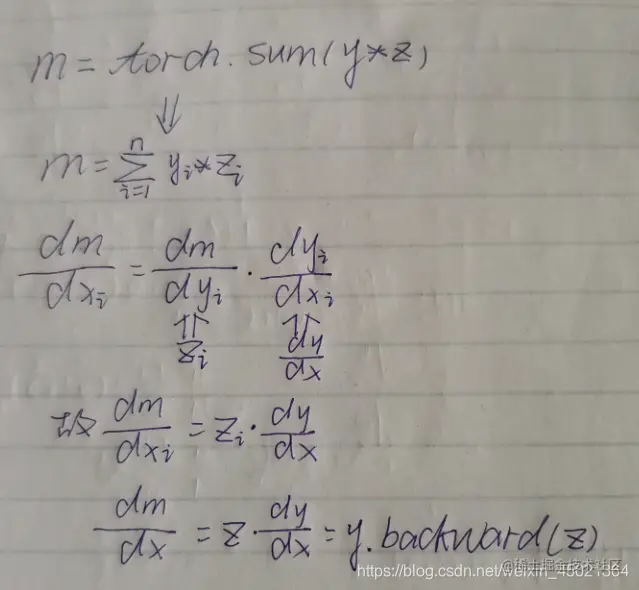 m = torch.sum(y*z)
⇓
m = \sum_{i=1}^{n} y_i * z_i
\frac{dm}{dx_i} = \frac{dm}{dy_i} · \frac{dy_i}{dx_i}
⇑ ⇑
z_i \frac{dy}{dx}
故 \frac{dm}{dx_i} = z_i · \frac{dy}{dx}
\frac{dm}{dx} = z · \frac{dy}{dx} = y.backward(z)
@稀土掘金技术社区
https://blog.csdn.net/weixin_45021364